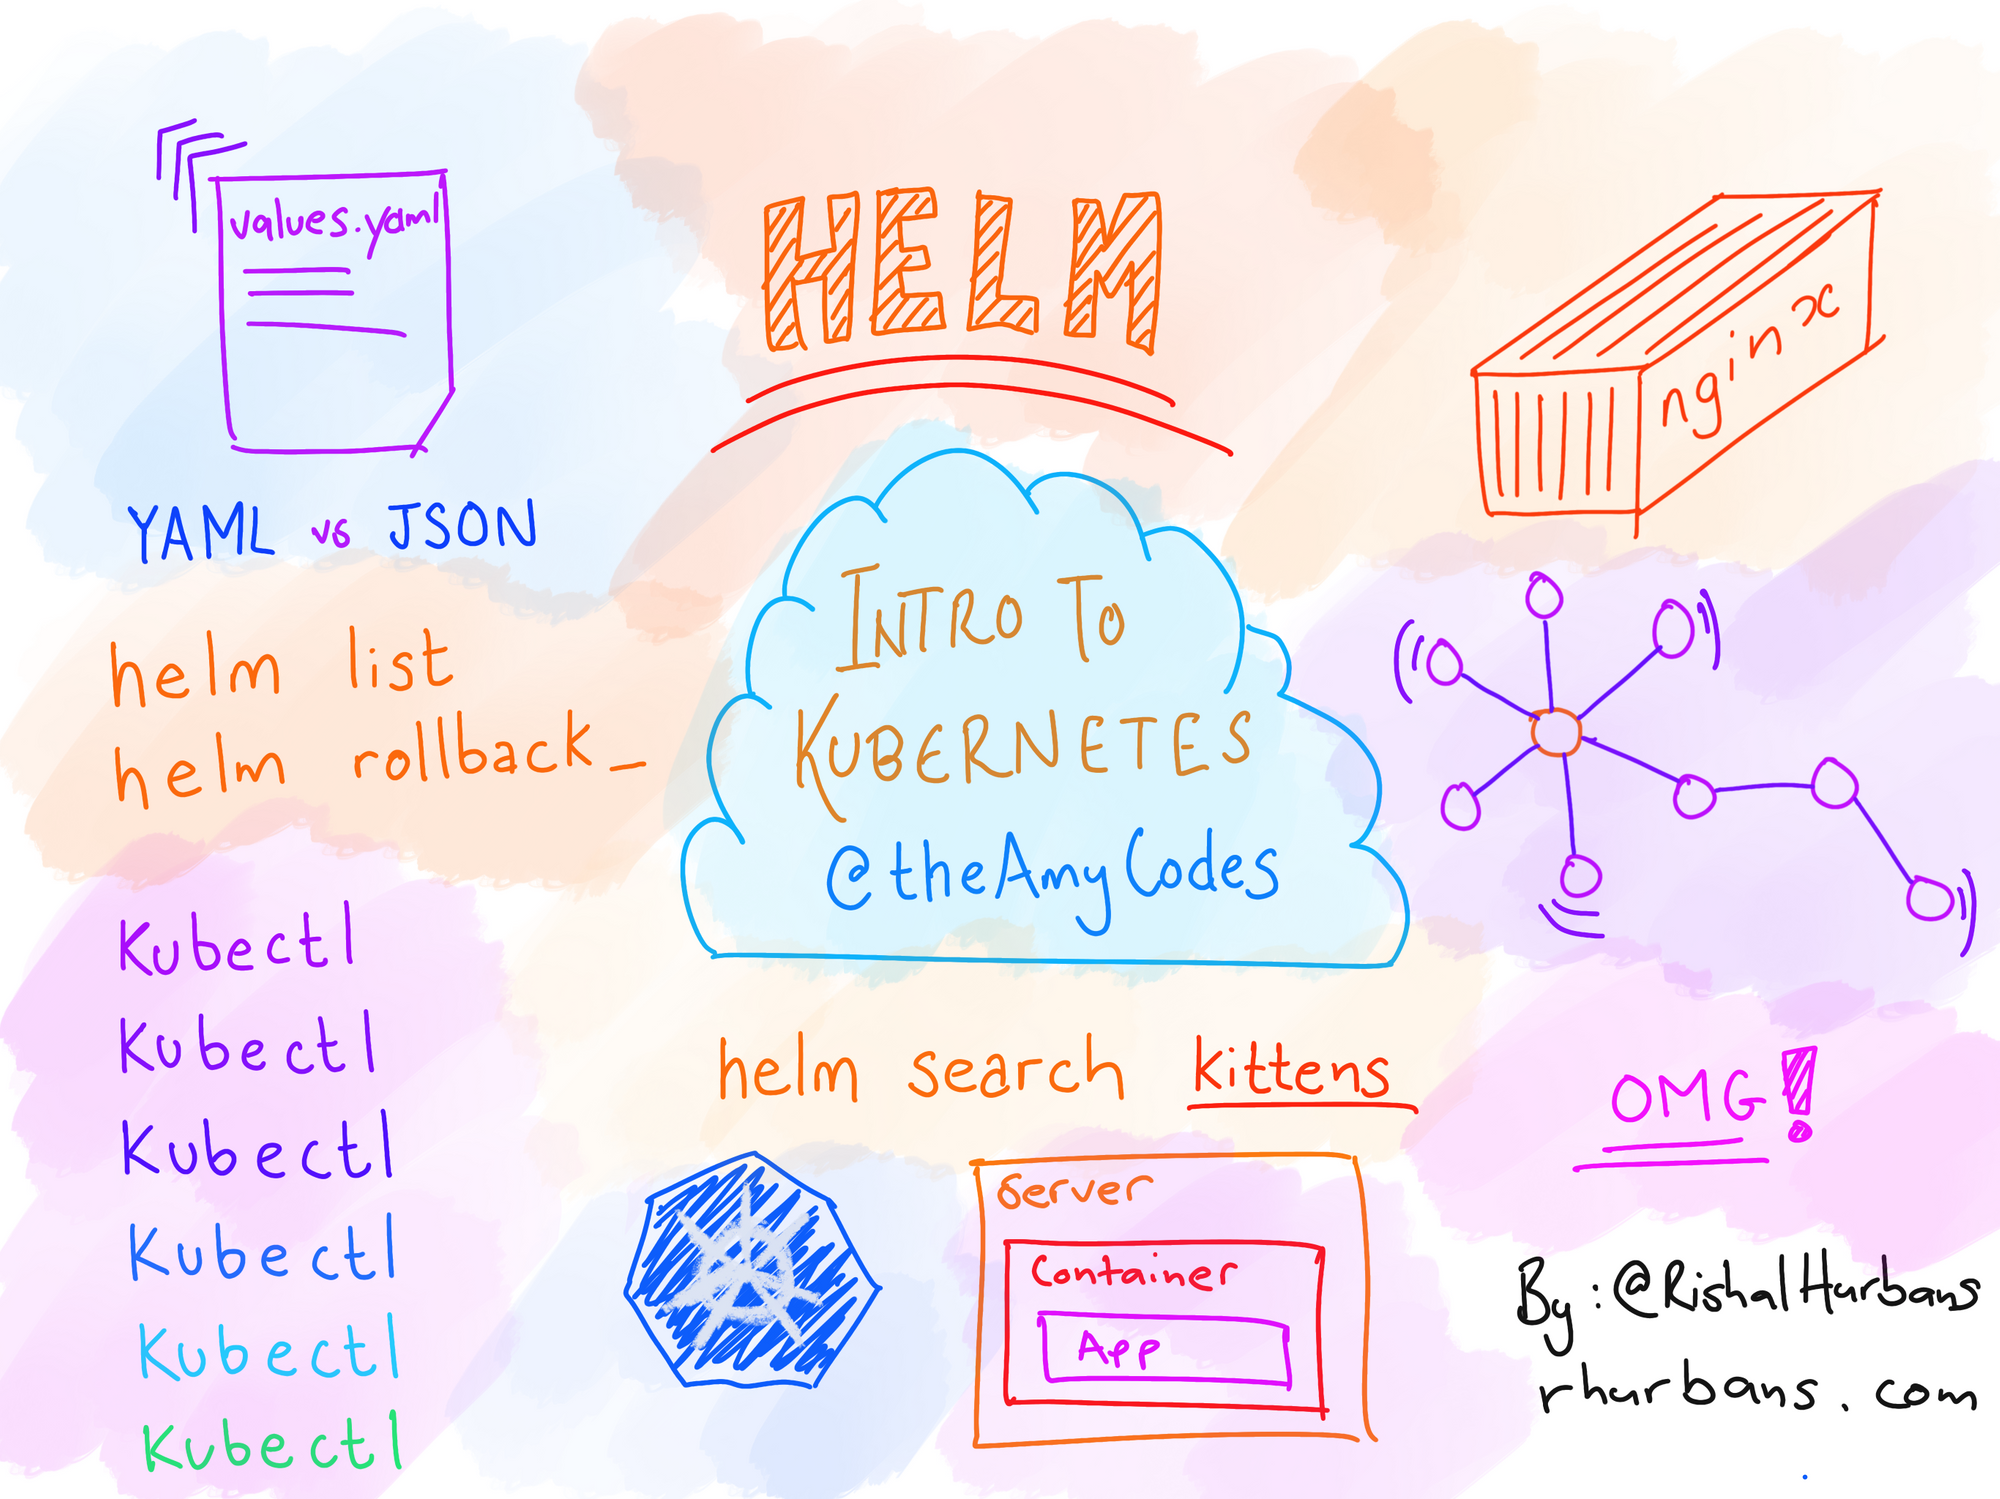 values.yaml
YAML vs JSON
helm list
helm rollback_
Kubectl
Kubectl
Kubectl
Kubectl
Kubectl
Kubectl
HELM
INTRO TO
KUBERNETES
@theAmyCodes
helm search kittens
Server
Container
App
nginx
OMG!
By: @RishalHurbans
rhurbans.com